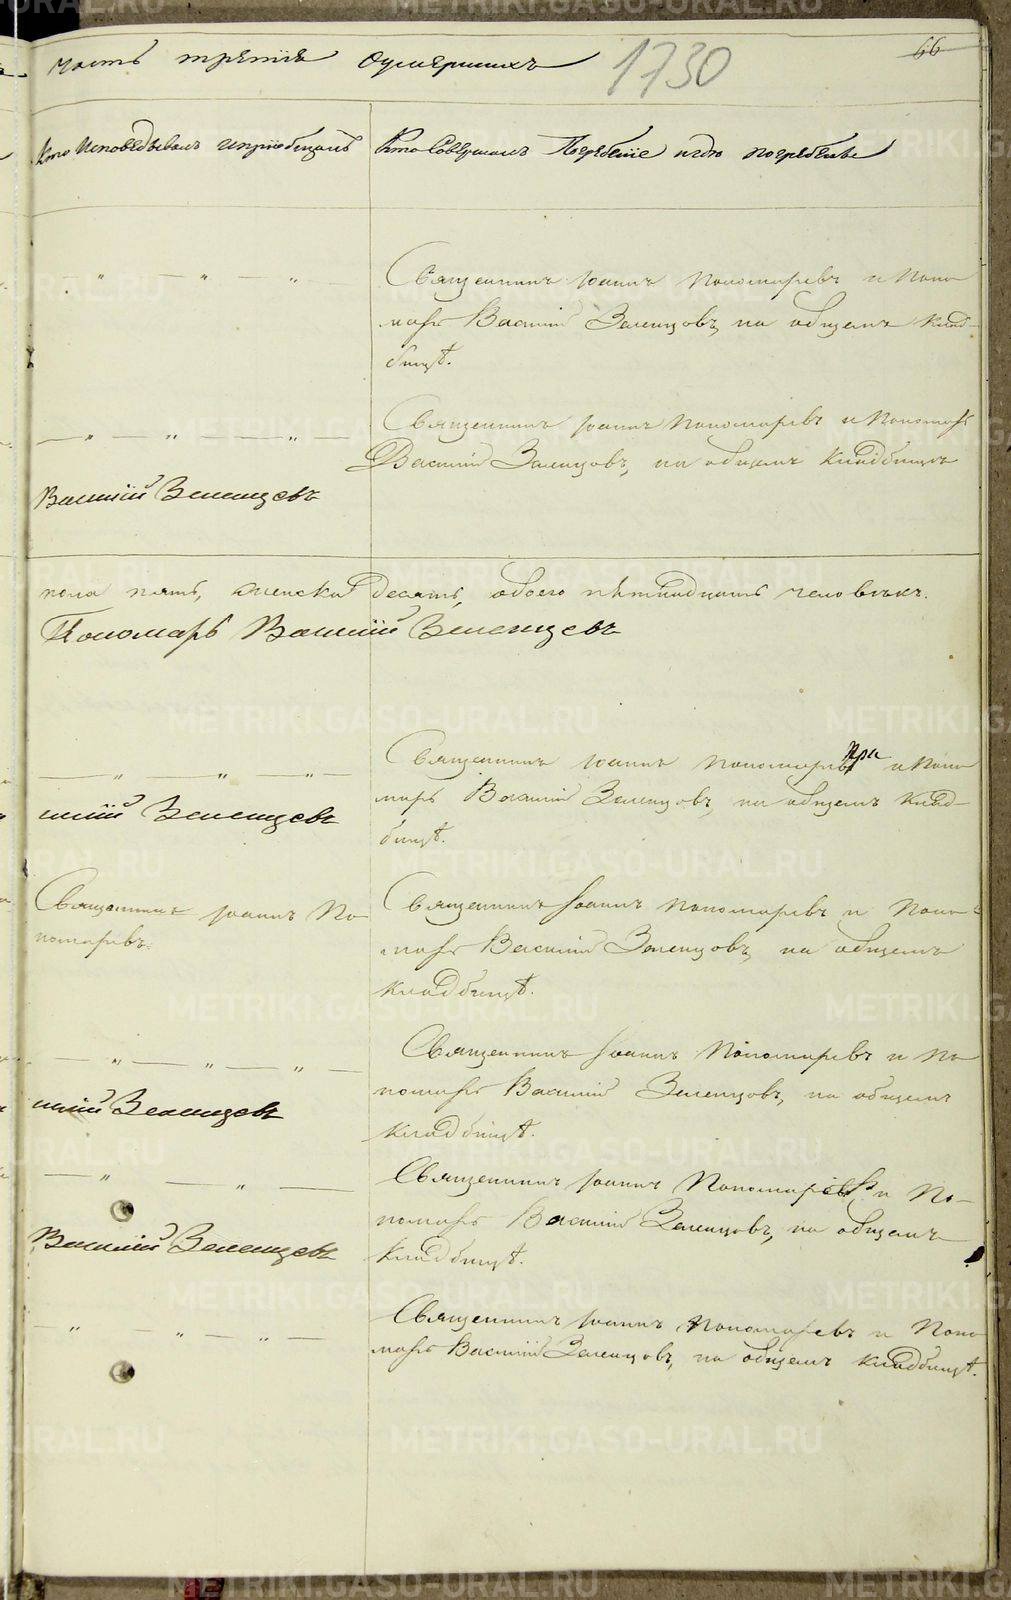 часть третія Оумершихъ 1730 66
Кто Исповѣдывалъ ипріобщалъ
Кто Совершалъ Погребеніе игдѣ погребены
Священникъ Іоаннъ Пономаревъ и Поно-
марь Василій Зеленцовъ, на общемъ клад-
бищѣ.
Священникъ Іоаннъ Пономаревъ и Пономарь
Василій Зеленцовъ, на общемъ кладбищѣ
Василій Зеленцевъ
пола пять, женска десять, обоего пѣтнадцать человѣкъ.
Пономарь Василій Зеленцевъ
Священникъ Іоаннъ Пономаревъ и Поно-
марь Василій Зеленцовъ, на общемъ клад-
бищѣ.
силій Зеленцевъ
Священникъ Іоаннъ По-
номаревъ.
Священникъ Іоаннъ Пономаревъ и Поно-
марь Василій Зеленцовъ, на общемъ
кладбищѣ.
Священникъ Іоаннъ Пономаревъ и По-
номарь Василій Зеленцовъ, на общемъ
кладбищѣ.
силій Зеленцовъ
Священникъ Іоаннъ Пономаревъ и По-
номарь Василій Зеленцовъ, на общемъ
кладбищѣ.
Василій Зеленцевъ
Священникъ Іоаннъ Пономаревъ и Поно-
марь Василій Зеленцовъ, на общемъ кладбищѣ.
METRIKI.GASO-URAL.RU